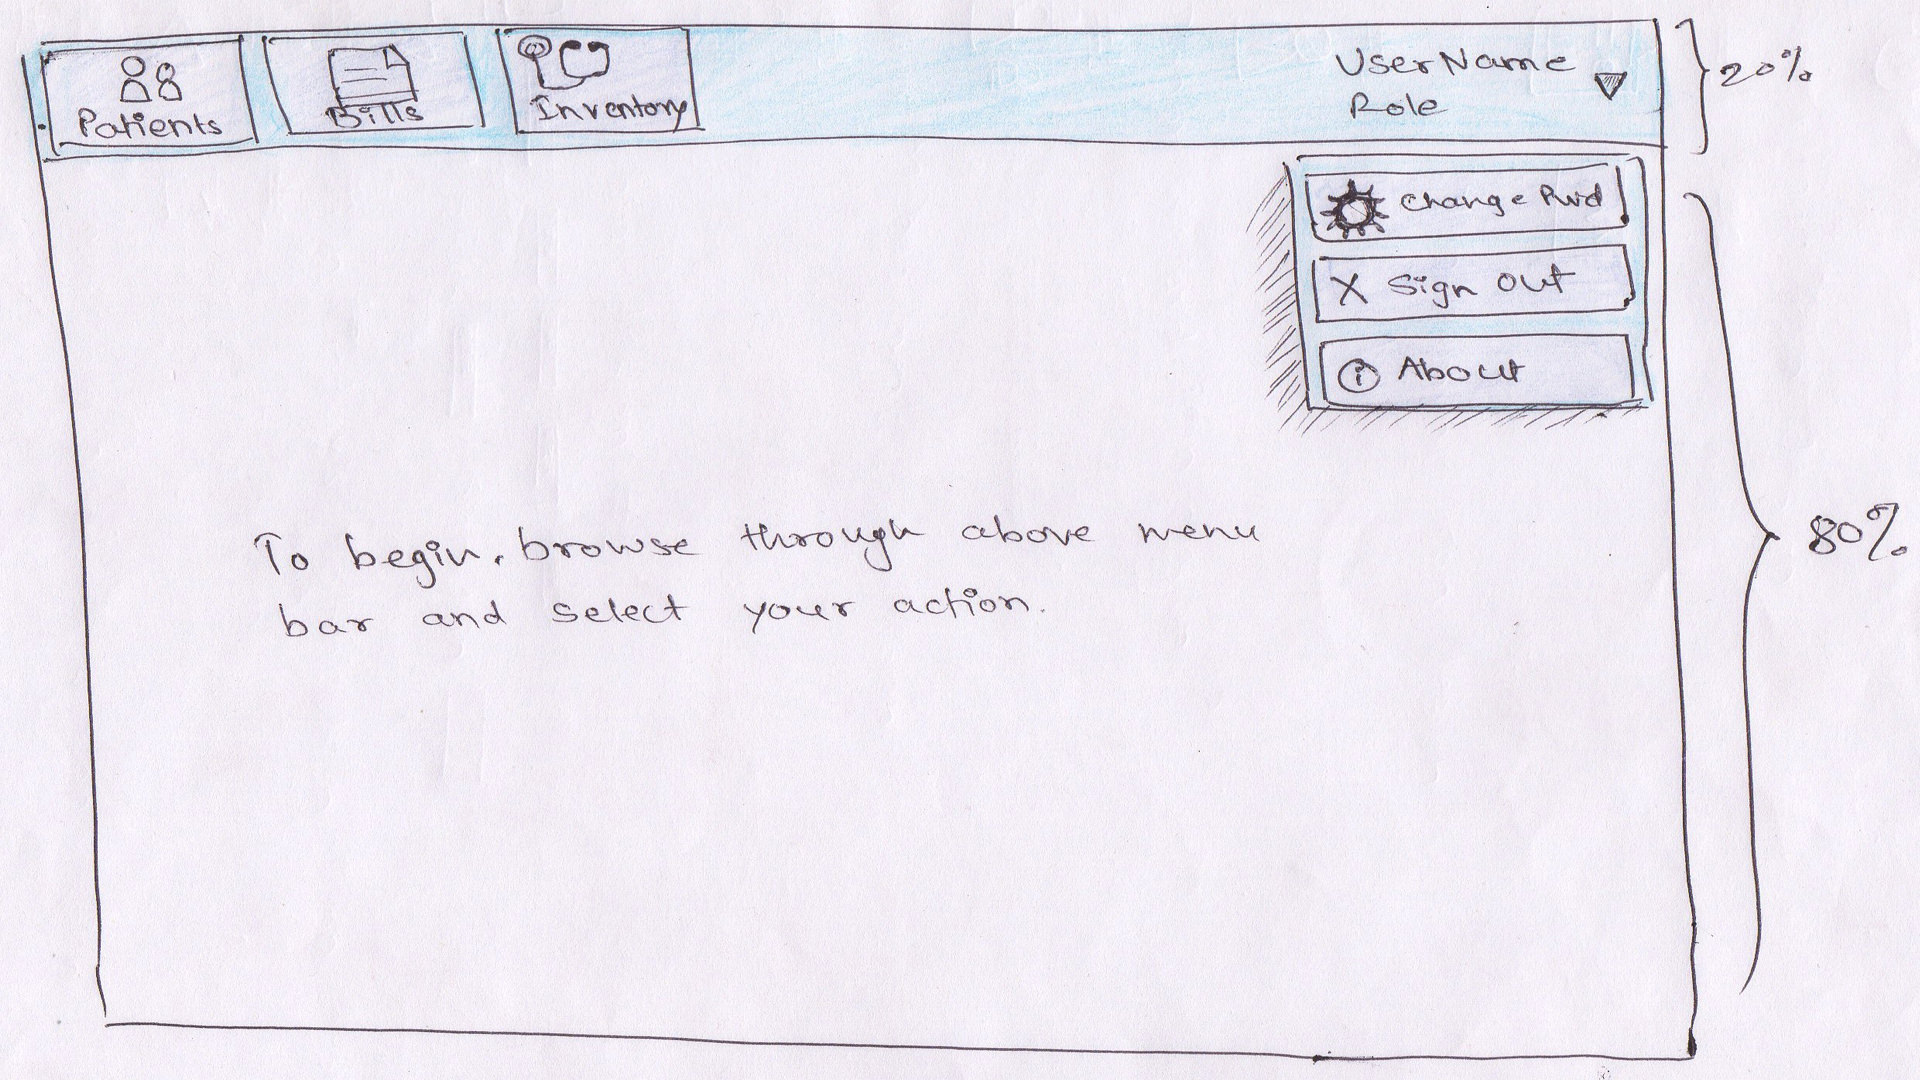 Patients
Bills
Inventory
UserName
Role
20%
Change Pwd
X Sign Out
i About
80%
To begin, browse through above menu
bar and select your action.